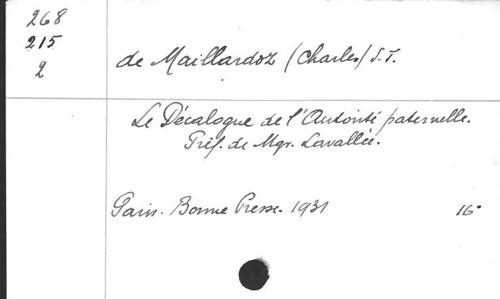 268
215
2
de Maillardoz (Charles) S.J.
Le Décalogue de l'Autorité paternelle.
Préf. de Mgr. Lavallée.
Paris. Bonne Presse. 1931 16°